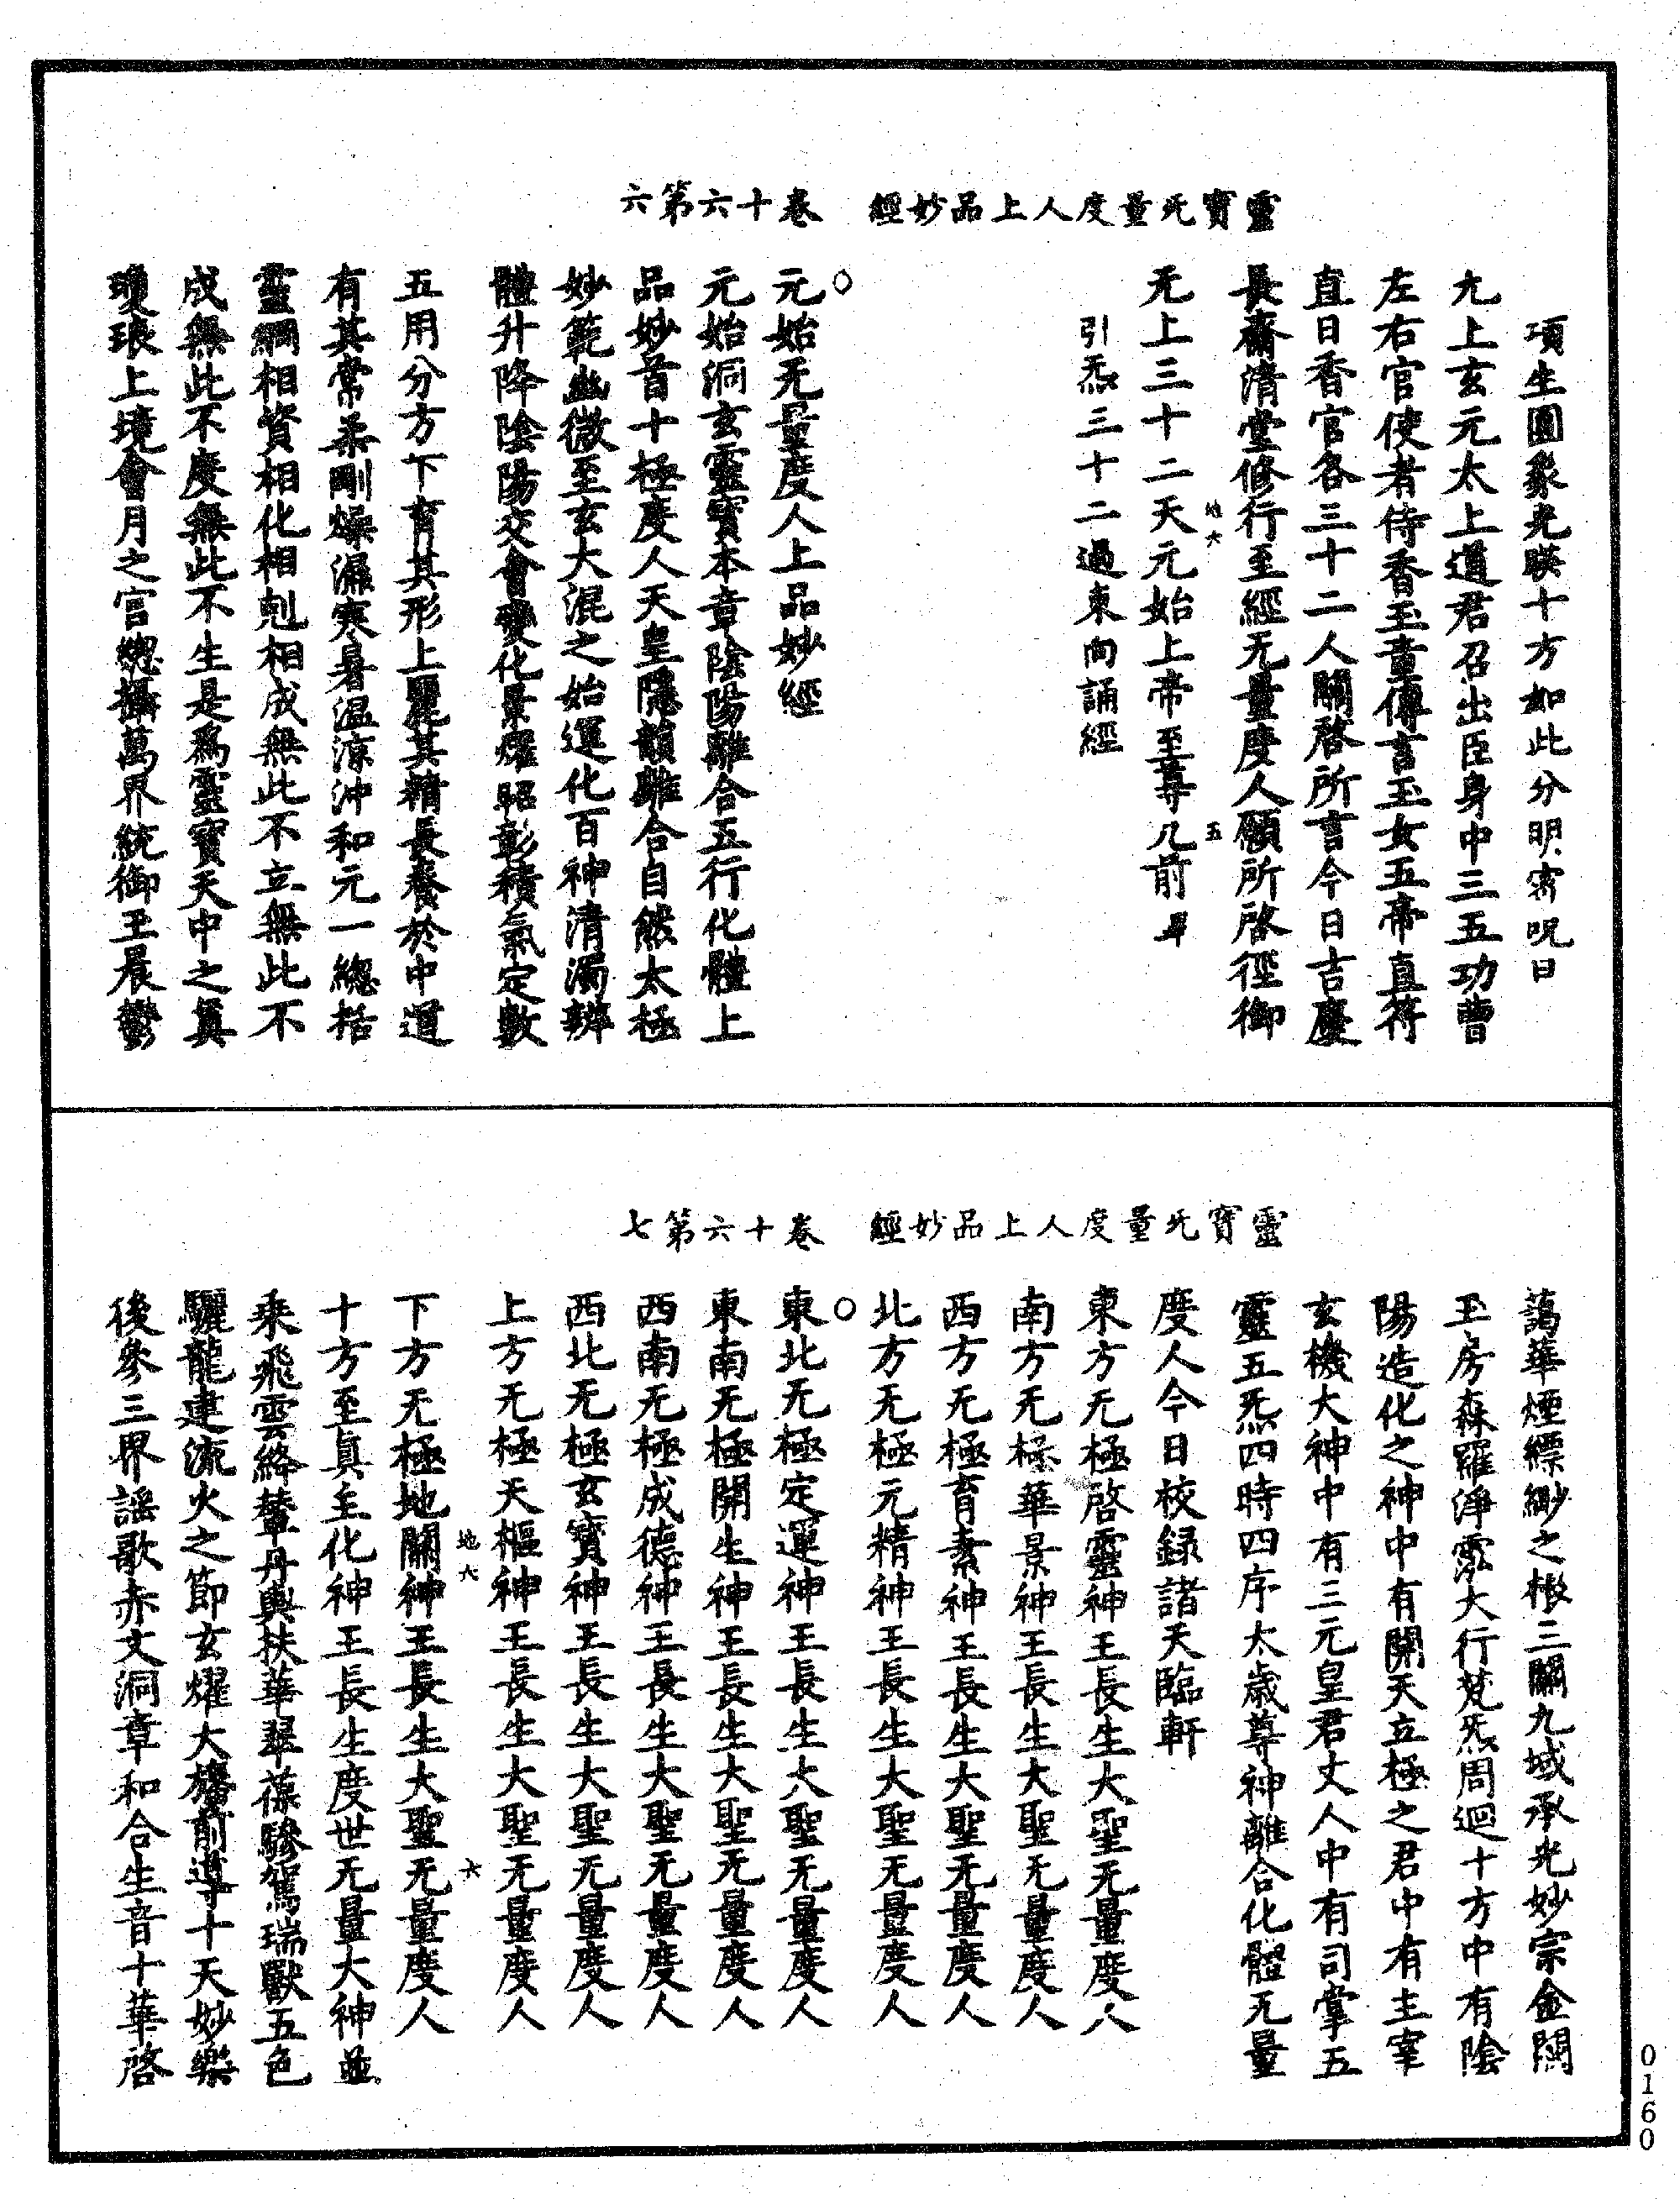 靈寶无量度人上品妙經　卷十六第六
項生圓象光暎十方如此分明密呪曰
九上玄元太上道君召出臣身中三五功曹
左右官使者侍香玉童傳言玉女五帝直符
直日香官各三十二人關啓所言今日吉慶
長齋清堂修行至經无量度人願所啓徑御
地六　五
无上三十二天元始上帝至尊几前畢
引炁三十二過東向誦經
元始无量度人上品妙經
元始洞玄靈寶本章陰陽離合五行化體上
品妙首十極度人天皇隱韻離合自然太極
妙範幽微至玄大混之始運化百神清濁辨
體升降陰陽交會變化景燿昭彰積氣定數
五用分方下育其形上麗其精長養於中道
有其常柔剛燥濕寒暑温涼沖和元一總括
靈綱相資相化相剋相成無此不立無此不
成無此不度無此不生是爲靈寶天中之真
瓊琅上境會月之宫總攝萬界統御玉晨鬱
靈寶无量度人上品妙經　卷十六第七
藹華煙縹緲之根三關九域承光妙宗金闕
玉房森羅淨泓大行梵炁周迴十方中有陰
陽造化之神中有開天立極之君中有主宰
玄機大神中有三元皇君丈人中有司掌五
靈五炁四時四序太歲尊神離合化體无量
度人今日校録諸天臨軒
東方无極啓靈神王長生大聖无量度人
南方无極華景神王長生大聖无量度人
西方无極育素神王長生大聖无量度人
北方无極元精神王長生大聖无量度人
東北无極定運神王長生大聖无量度人
東南无極開生神王長生大聖无量度人
西南无極成德神王長生大聖无量度人
西北无極玄寶神王長生大聖无量度人
上方无極天樞神王長生大聖无量度人
地六　六
下方无極地關神王長生大聖无量度人
十方至真主化神王長生度世无量大神並
乘飛雲絳輦丹輿扶華翠葆驂駕瑞獸五色
驪龍建流火之節玄燿大旛前導十天妙樂
後參三界謡歌赤文洞章和合生音十華啓
0160